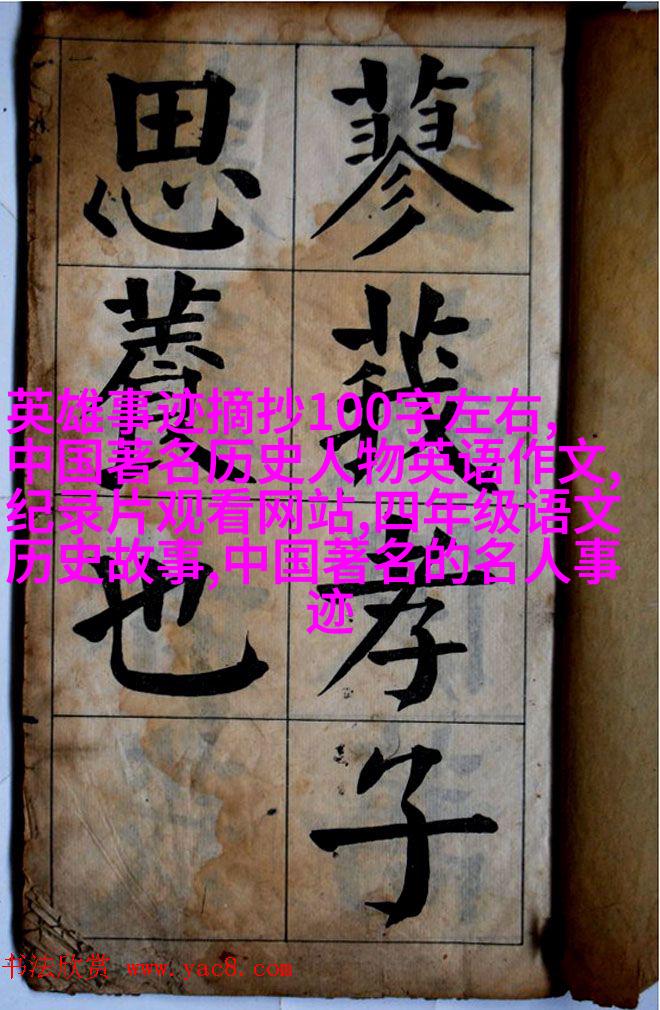 蓼莪孝子
思養也
英雄事迹摘抄100字左右,
中国著名历史人物英语作文,
纪录片观看网站,四年级语文
历史故事,中国著名的名人事
迹
书法欣赏 www.yac8.com